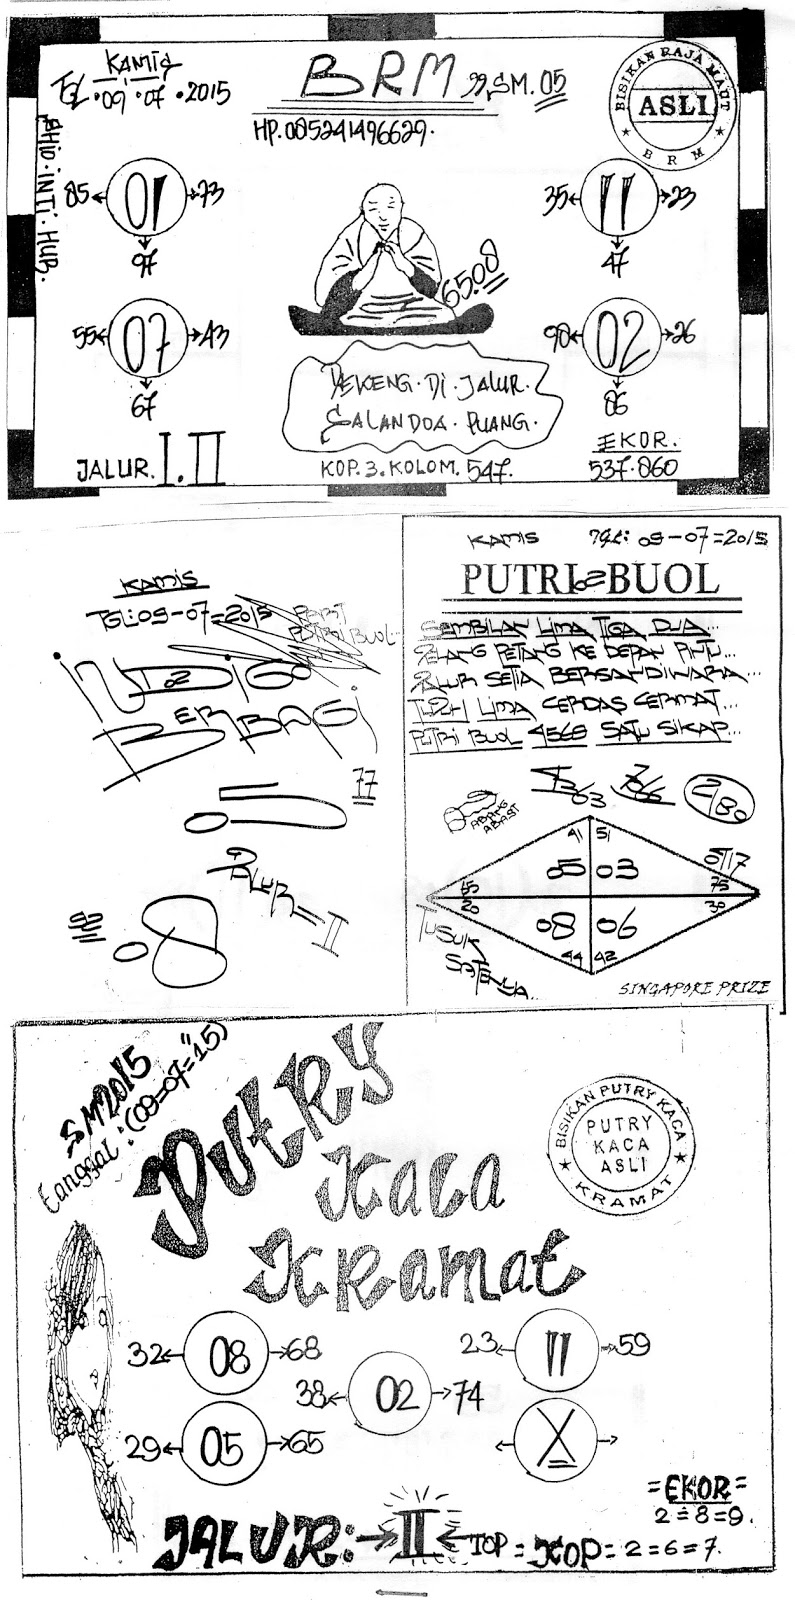 KAMIS
TGL . 09 . 07 . 2015
BRM 99, SM. 05
HP. 085241496629.
BISIKAN RAJA MAUT
ASLI
BRM
INTI . HUB.
85 01 73
97
35 11 23
47
6508
55 07 43
67
90 02 26
86
DI . JALUR.
SALANDOA . PUANG.
JALUR. I. II
KOP. 3. KOLOM. 547.
EKOR.
537. 860
KAMIS
TGL: 09-07=2015
BUOL
INDIGO
BERBAGI
77
JALUR = II
08
KAMIS TGL: 09-07=2015
PUTRI 02 BUOL
SEMBILAN LIMA TIGA DUA...
PETANG KE DEPAN PINTU...
JALUR SETIA BERSANDIWARA...
LIMA CERDAS CERMAT...
PUTRI BUOL 4568 SATU SIKAP...
ABANG
41 51
05 03
15 75
20 30
08 06
44 42
TUSUK
SATENYA...
SINGAPORE PRIZE
SM2015
tanggal: (09=07="15)
PUTRY
Kaca
KRamat
BISIKAN PUTRY KACA
PUTRY
KACA
ASLI
KRAMAT
32 08 68
23 11 59
38 02 74
29 05 65
X
=EKOR=
2=8=9.
JALUR: II
TOP = KOP = 2=6=7.